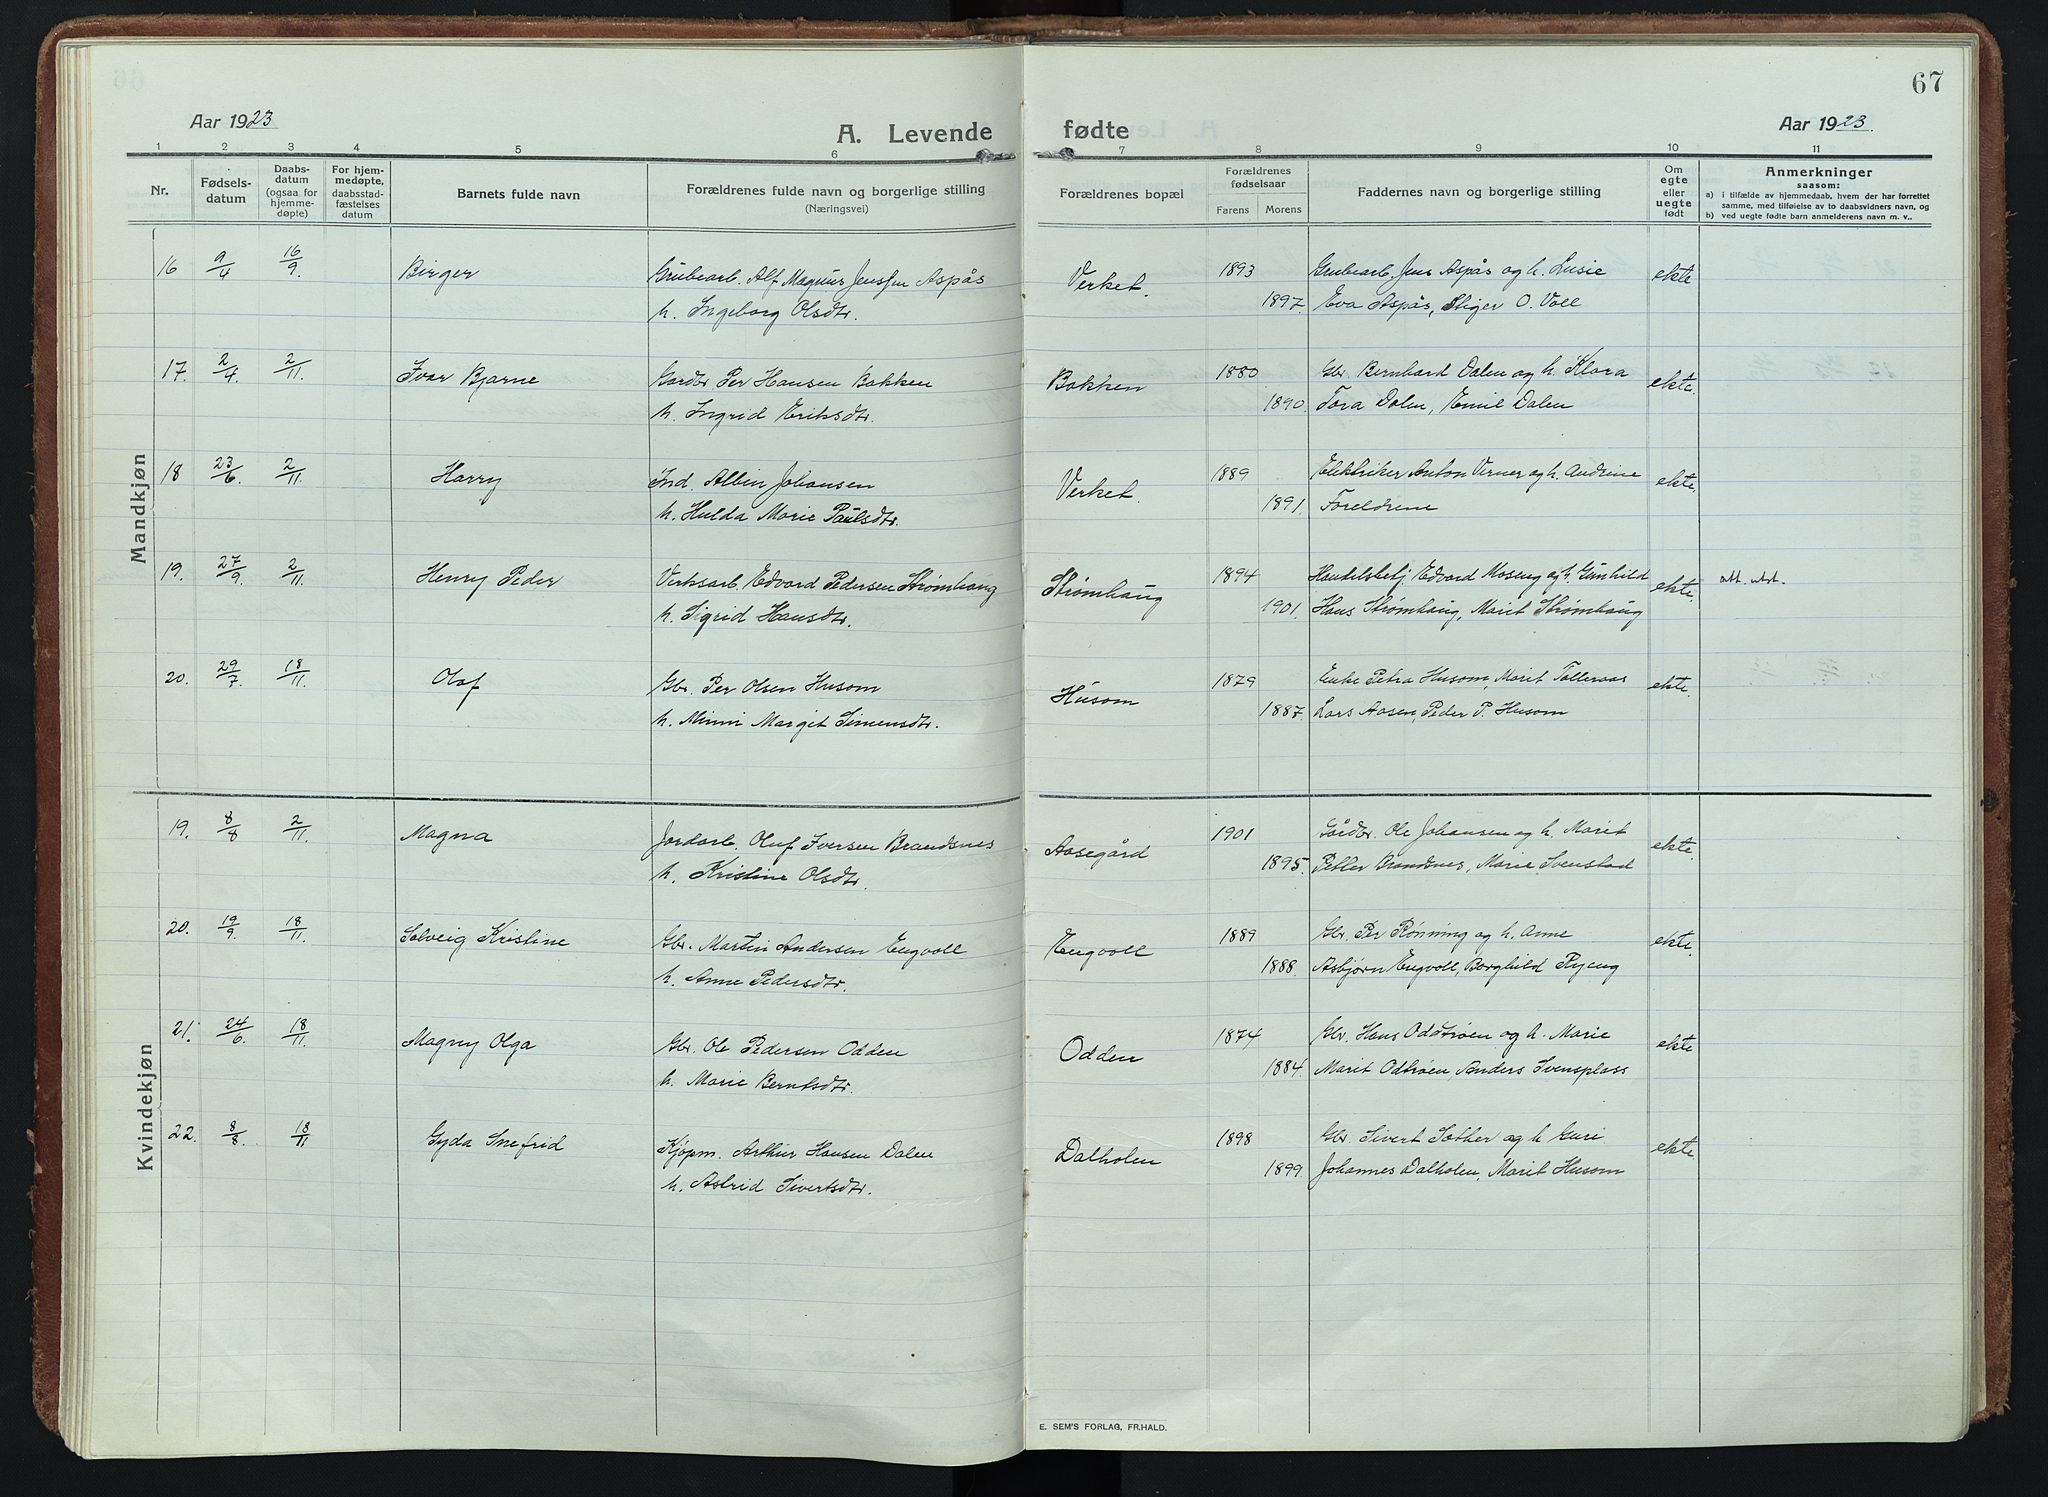 67
Aar 1923
A. Levende fødte
Aar 1923.
1 2 3 4 5 6 7 8 9 10 11
Nr.
Fødsels-
datum
Daabs-
datum
(ogsaa for
hjemme-
døpte)
For hjem-
medøpte,
daabsstad-
fæstelses
datum
Barnets fulde navn
Forældrenes fulde navn og borgerlige stilling
(Næringsvei)
Forældrenes bopæl
Forældrenes
fødselsaar
Farens Morens
Faddernes navn og borgerlige stilling
Om
egte
eller
uegte
født
Anmerkninger
saasom:
a) i tilfælde av hjemmedaab, hvem der har forrettet
samme, med tilføielse av to daabsvidners navn, og
b) ved uegte fødte barn anmelderens navn m. v..
Mandkjøn
16 9/4 16/9. Birger Grubearb. Alf Magnus Jenssen Aspås Verket. 1893 Grubearb. Jens Aspås og h. Lusie ekte
h. Ingeborg Olsdtr. 1897. Eva Aspås, Stiger O. Voll
17. 2/4. 2/11. Ivar Bjarne Gardbr. Per Hansen Bakken Bakken 1880 Gbr. Bernhard Dalen og h. Klara ekte.
h. Ingrid Eriksdtr. 1890. Tora Dalen, Emil Dalen
18 23/6. 2/11. Harry Ind. Albin Johansen Verket. 1889 Elektriker Anton Verner og h. Andrine ekte.
h. Hulda Marie Paulsdtr. 1891. Foreldrene
19. 27/9. 2/11. Henry Peder Verksarb. Edvard Pedersen Strømhaug Strømhaug 1894 Handelsbetj. Edvard Moseng og h. Gunhild ekte. att. utst.
h. Sigrid Hansdtr. 1901. Hans Strømhaug, Marit Strømhaug
20. 29/7. 18/11. Olaf Gbr. Per Olsen Husom Husom 1879 Enke Petra Husom, Marit Tolleraas ekte.
h. Minni Margit Simensdtr. 1887. Lars Aasen, Peder P. Husom
Kvindekjøn
19. 8/8 2/11. Magna Jordarb. Oluf Iversen Brandsnes Aasegård 1901 Gårdbr. Ole Johansen og h. Marit ekte.
h. Kristine Olsdtr. 1895. Petter Brandsnes, Marie Svenstad
20. 19/9. 18/11. Solveig Kristine Gbr. Martin Andersen Engvoll Engvoll 1889 Gbr. Per Rønning og h. Anne ekte.
h. Anne Pedersdtr. 1888. Asbjørn Engvoll, Borghild Ryeng
21. 24/6. 18/11. Magny Olga Gbr. Ole Pedersen Odden Odden 1874 Gbr. Hans Oddtrøen og h. Marie ekte
h. Marie Berntsdtr. 1884. Marit Odtrøen, Anders Svensplass
22. 8/8. 18/11 Gyda Snefrid Kjøpm. Arthur Hansen Dalen Dalholen 1898 Gbr. Sivert Sæther og h. Guri ekte
h. Astrid Sivertsdtr. 1899. Johannes Dalholen, Marit Husom
E. SEM'S FORLAG, FR.HALD.